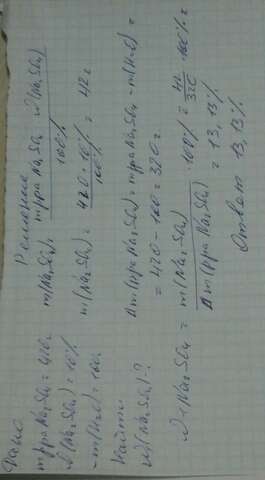 Дано
m р-ра Na₂SO₄ = 420 г
ω(Na₂SO₄) = 10%
- m(H₂O) = 100 г
Найти
ω₁(Na₂SO₄)?
Решение
m(Na₂SO₄) = m р-ра Na₂SO₄ · ω(Na₂SO₄) / 100%
m(Na₂SO₄) = 420 · 10% / 100% = 42 г
Δm(р-ра Na₂SO₄) = m р-ра Na₂SO₄ - m(H₂O) =
= 420 - 100 = 320 г
ω₁ Na₂SO₄ = m(Na₂SO₄) / Δm(р-ра Na₂SO₄) · 100% = 42/320 · 100% =
= 13,13%
Ответ 13,13%